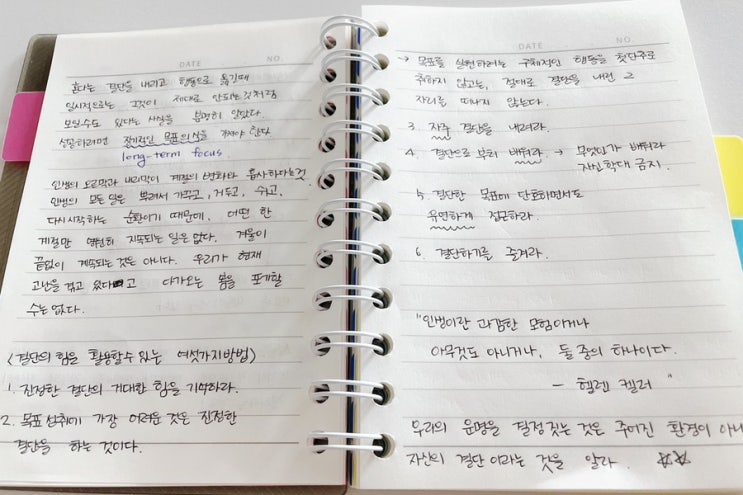 DATE NO.
나는 결단을 내리고 행동으로 옮길때
일시적으로는 그것이 제대로 안되는것처럼
보일수도 있다는 사실을 분명히 알았다.
성공하려면 장기적인 목표의식을 가져야 한다.
long-term focus.
인생의 오르막과 내리막이 계절의 변화와 흡사하다는것.
인생의 모든 일은 뿌려서 가꾸고, 거두고, 쉬고,
다시 시작하는 순환이기 때문에, 어떤 한
계절만 영원히 지속되는 일은 없다. 겨울이
끝없이 계속되는 것은 아니다. 우리가 현재
고난을 겪고 있다고 다가오는 봄을 포기할
수는 없다.
<결단의 힘을 활용할수 있는 여섯가지방법>
1. 진정한 결단의 거대한 힘을 기억하라.
2. 목표 성취에 가장 어려운 것은 진정한
결단을 하는 것이다.
DATE NO.
→ 목표를 실현하려는 구체적인 행동을 첫단추로
취하지 않고는, 절대로 결단을 내린 그
자리를 떠나지 않는다.
3. 자주 결단을 내려라.
4. 결단으로부터 배워라. → 무엇인가 배워라
자신학대 금지.
5. 결단한 목표에 단호하면서도
유연하게 접근하라.
6. 결단하기를 즐겨라.
"인생이란 과감한 모험이거나
아무것도 아니거나, 둘 중의 하나이다.
- 헬렌 켈러 "
우리의 운명을 결정짓는 것은 주어진 환경이 아니
자신의 결단이라는 것을 알라. ☆☆